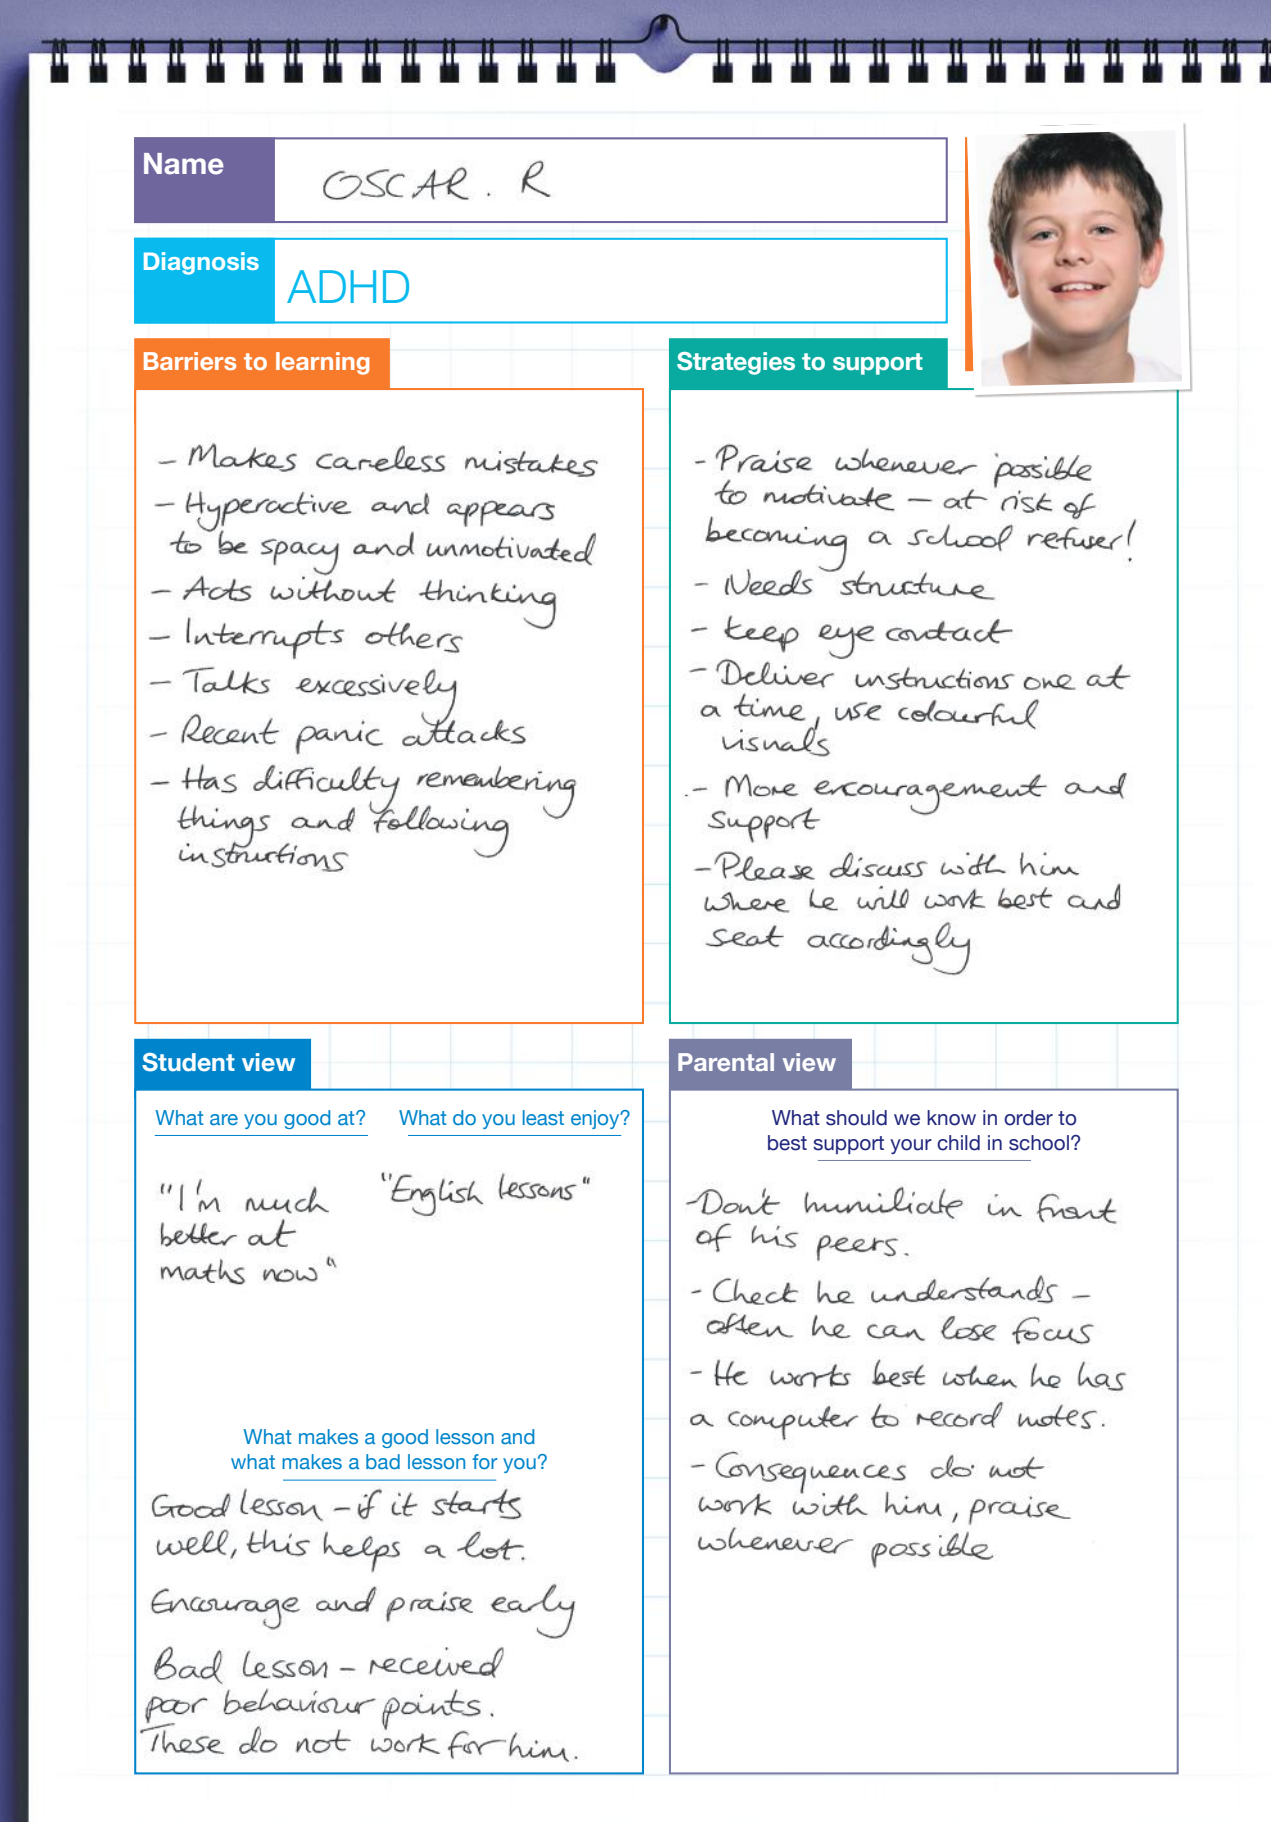 Name
OSCAR. R
Diagnosis
ADHD
Barriers to learning
- Makes careless mistakes
- Hyperactive and appears
to be spacy and unmotivated
- Acts without thinking
- Interrupts others
- Talks excessively
- Recent panic attacks
- Has difficulty remembering
things and following
instructions
Strategies to support
- Praise whenever possible
to motivate - at risk of
becoming a school refuser!
- Needs structure
- keep eye contact
- Deliver instructions one at
a time, use colourful
visuals
- More encouragement and
support
- Please discuss with him
where he will work best and
seat accordingly
Student view
What are you good at?
"I'm much
better at
maths now"
What do you least enjoy?
"English lessons"
What makes a good lesson and
what makes a bad lesson for you?
Good lesson - if it starts
well, this helps a lot.
Encourage and praise early
Bad lesson - received
poor behaviour points.
These do not work for him.
Parental view
What should we know in order to
best support your child in school?
- Don't humiliate in front
of his peers.
- Check he understands -
often he can lose focus
- He works best when he has
a computer to record notes.
- Consequences do not
work with him, praise
whenever possible